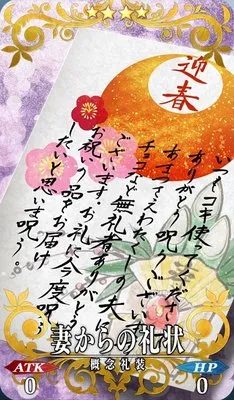 迎春
いつもコキ使てくださり
ありがとう呪うございます
あまつさえわたくしの夫に
チョコなど無礼者ありがとう
ございます・お礼に今度呪う
お祝いの品をお届け
したいと思います呪う。
妻からの礼状
概念礼装
ATK 0
HP 0